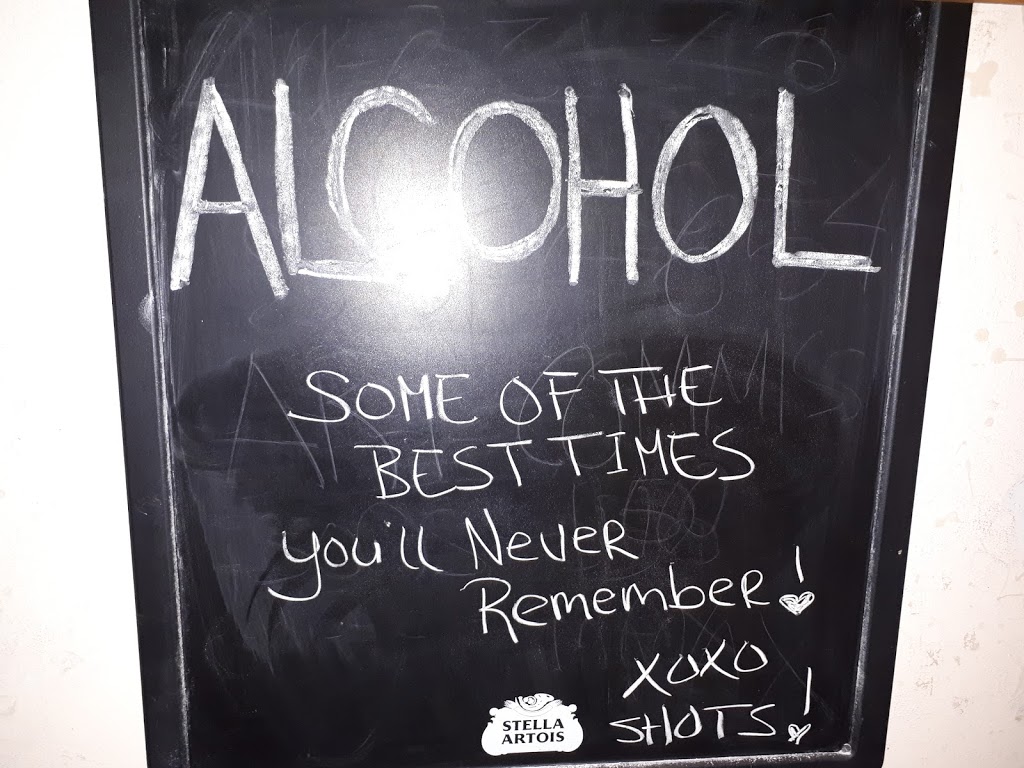 ALCOHOL
SOME OF THE
BEST TIMES
you'll Never
Remember!
XOXO
SHOTS!
STELLA
ARTOIS